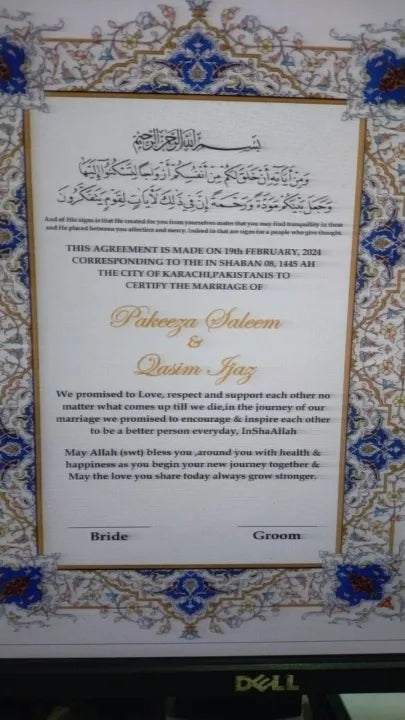 بِسْمِ اللَّهِ الرَّحْمَٰنِ الرَّحِيمِ
وَمِنْ آيَاتِهِ أَنْ خَلَقَ لَكُم مِّنْ أَنفُسِكُمْ أَزْوَاجًا لِّتَسْكُنُوا إِلَيْهَا
وَجَعَلَ بَيْنَكُم مَّوَدَّةً وَرَحْمَةً إِنَّ فِي ذَٰلِكَ لَآيَاتٍ لِّقَوْمٍ يَتَفَكَّرُونَ
And of His signs is that He created for you from yourselves mates that you may find tranquility in them
and He placed between you affection and mercy. Indeed in that are signs for a people who give thought.
THIS AGREEMENT IS MADE ON 19th FEBRUARY, 2024
CORRESPONDING TO THE IN SHABAN 08, 1445 AH
THE CITY OF KARACHI,PAKISTANIS TO
CERTIFY THE MARRIAGE OF
Pakeeza Saleem
&
Qasim Ijaz
We promised to Love, respect and support each other no
matter what comes up till we die,in the journey of our
marriage we promised to encourage & inspire each other
to be a better person everyday, InShaAllah
May Allah (swt) bless you ,around you with health &
happiness as you begin your new journey together &
May the love you share today always grow stronger.
Bride Groom
DELL